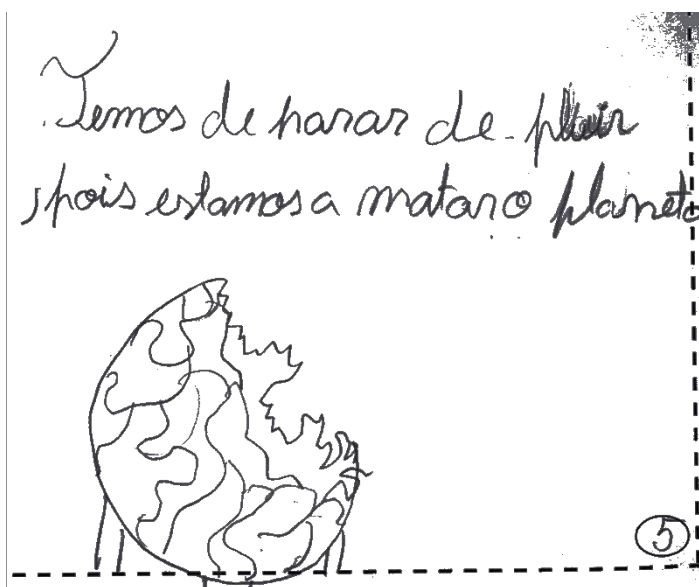 Temos de parar de pluir
, pois estamos a matar o planeta
5